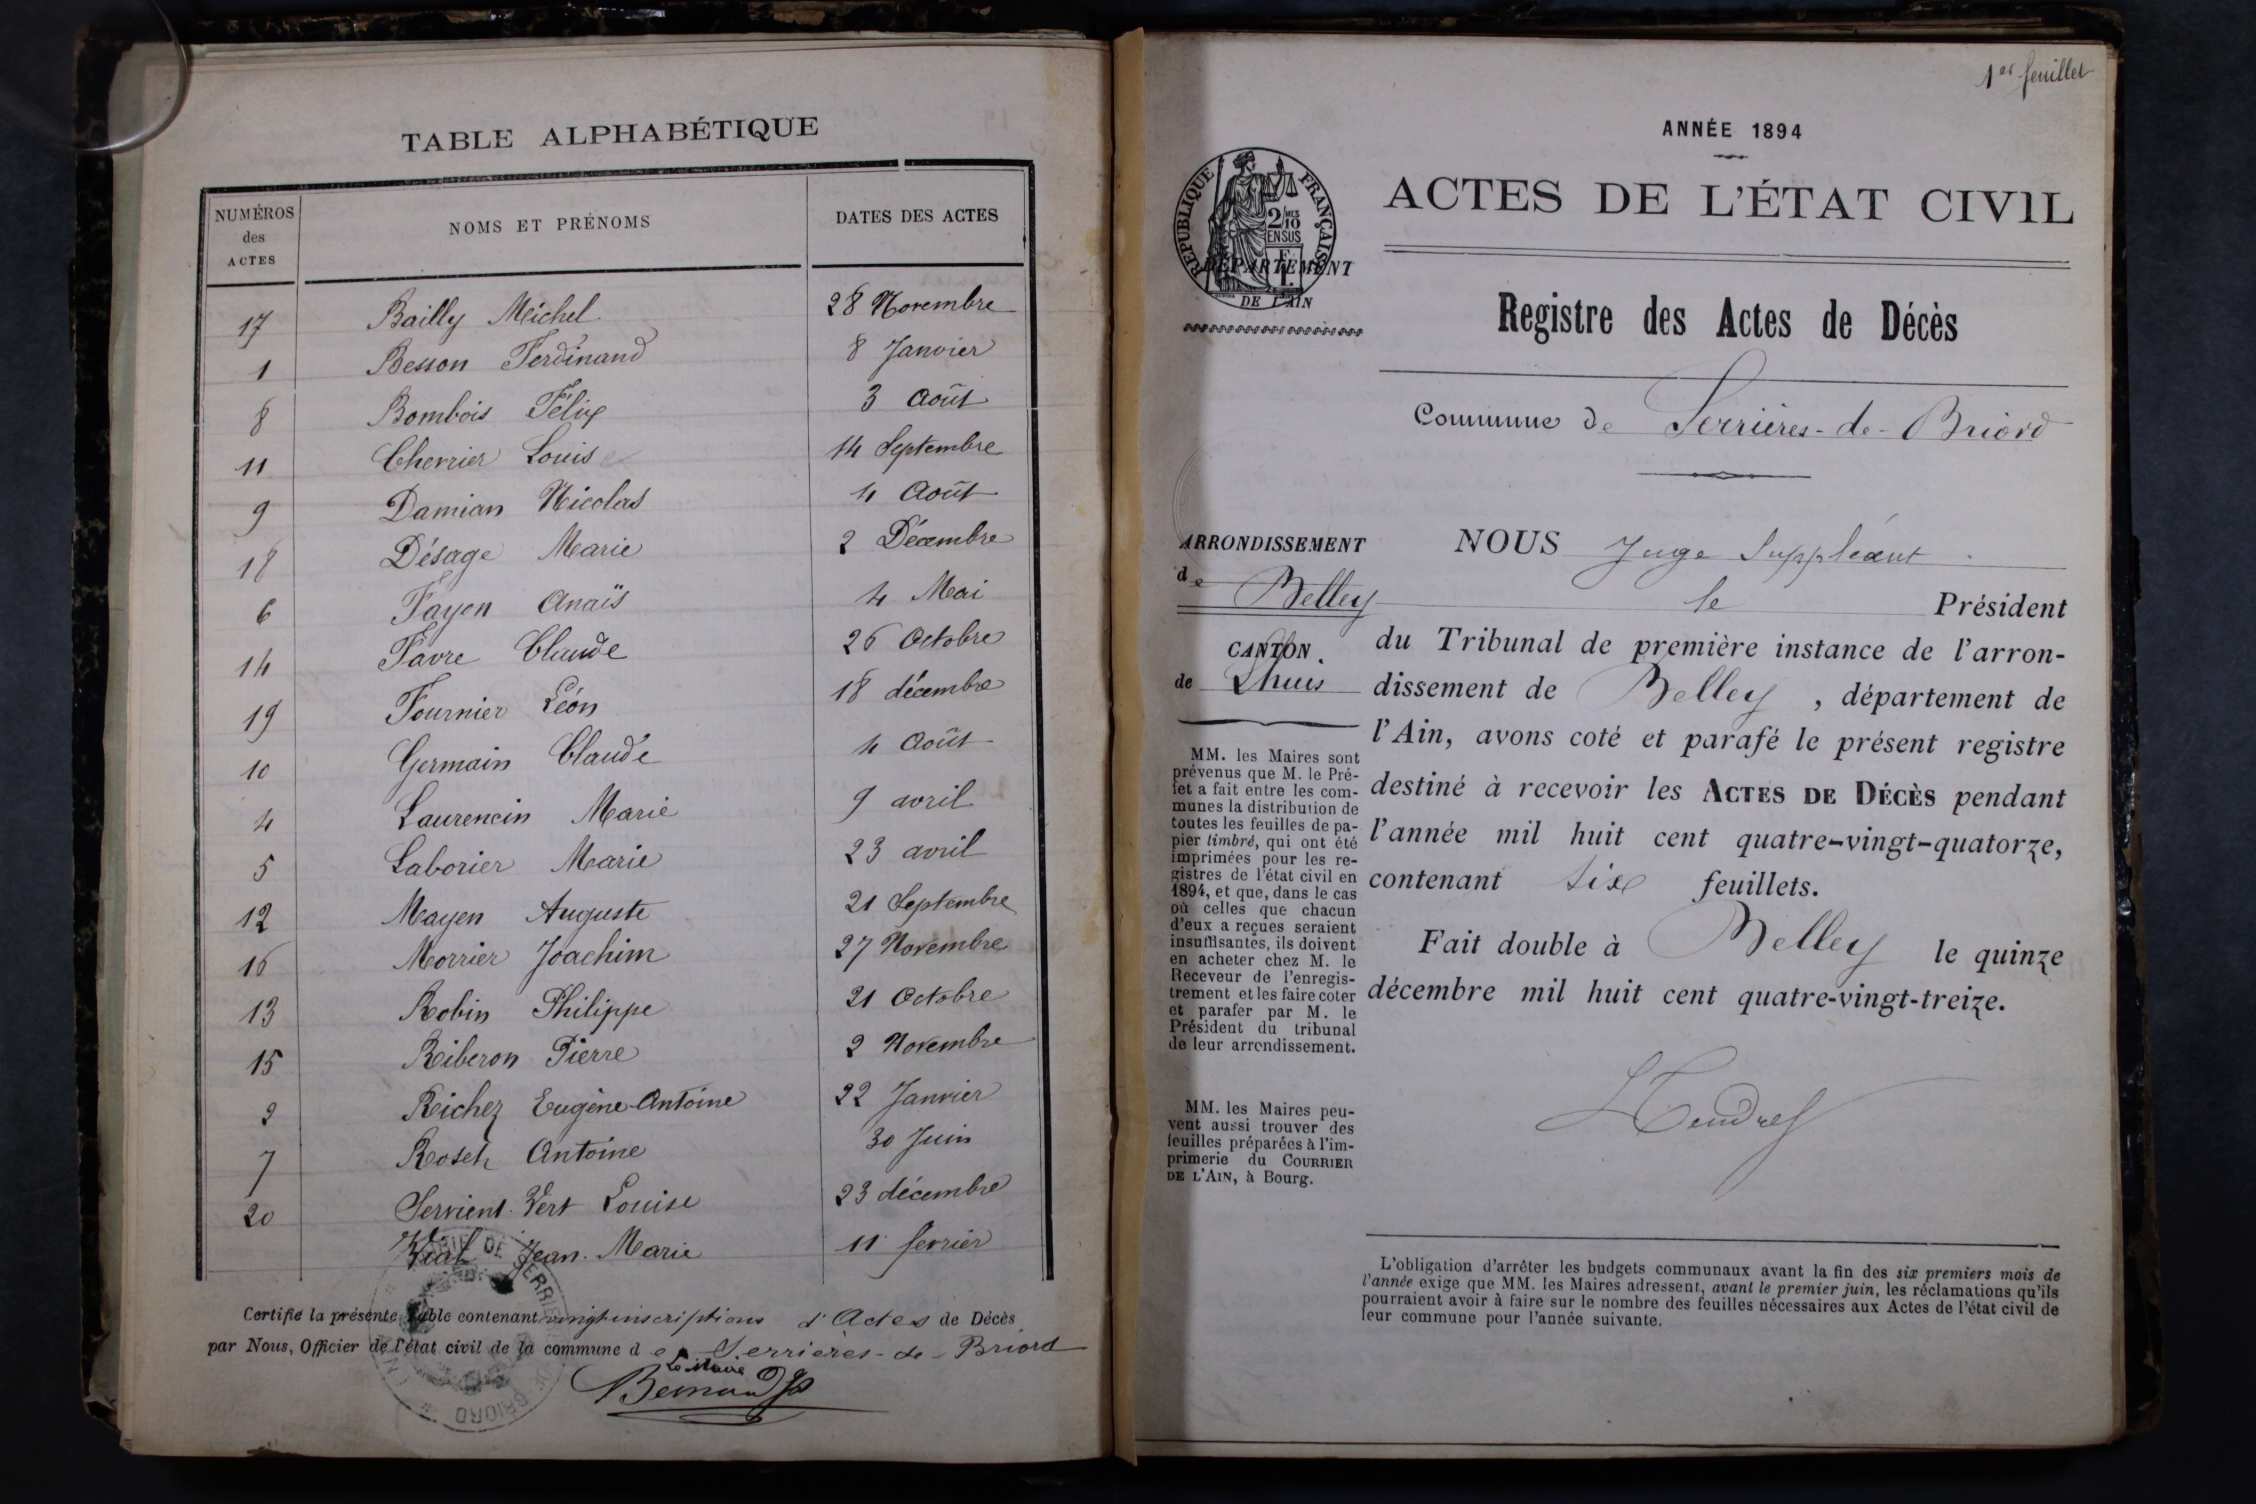 TABLE ALPHABÉTIQUE
NUMÉROS des ACTES NOMS ET PRÉNOMS DATES DES ACTES
17 Bailly Michel 28 Novembre
1 Besson Ferdinand 8 Janvier
8 Bombois Félix 3 Août
11 Cherrier Louis 14 Septembre
9 Damian Nicolas 4 Août
18 Désage Marie 2 Décembre
6 Fayen Anaïs 4 Mai
14 Favre Claude 26 Octobre
19 Fournier Léon 18 décembre
10 Germain Claude 4 Août
4 Laurencin Marie 9 avril
5 Laborier Marie 23 avril
12 Mayen Auguste 21 Septembre
16 Morrier Joachim 27 Novembre
13 Robin Philippe 21 Octobre
15 Riberon Pierre 2 Novembre
2 Richez Eugène-Antoine 22 Janvier
7 Rosch Antoine 30 Juin
20 Servient-Vert Louise 23 décembre
Vial Jean-Marie 11 fevrier
Certifié la présente Table contenant vingt inscriptions d'Actes de Décès
par Nous, Officier de l'état civil de la commune de Serrières-de-Briord
Le Maire
1er feuillet
ANNÉE 1894
ACTES DE L'ÉTAT CIVIL
RÉPUBLIQUE FRANÇAISE
2/10
EN SUS
DÉPARTEMENT
DE L'AIN
Registre des Actes de Décès
Commune de Serrières-de-Briord
ARRONDISSEMENT
de Belley
CANTON
de Lhuis
MM. les Maires sont
prévenus que M. le Pré-
fet a fait entre les com-
munes la distribution de
toutes les feuilles de pa-
pier timbré, qui ont été
imprimées pour les re-
gistres de l'état civil en
1894, et que, dans le cas
où celles que chacun
d'eux a reçues seraient
insuffisantes, ils doivent
en acheter chez M. le
Receveur de l'enregis-
trement et les faire coter
et parafer par M. le
Président du tribunal
de leur arrondissement.
MM. les Maires peu-
vent aussi trouver des
feuilles préparées à l'im-
primerie du COURRIER
DE L'AIN, à Bourg.
NOUS Juge Suppléant
le Président
du Tribunal de première instance de l'arron-
dissement de Belley, département de
l'Ain, avons coté et parafé le présent registre
destiné à recevoir les ACTES DE DÉCÈS pendant
l'année mil huit cent quatre-vingt-quatorze,
contenant six feuillets.
Fait double à Belley le quinze
décembre mil huit cent quatre-vingt-treize.
L'obligation d'arrêter les budgets communaux avant la fin des six premiers mois de
l'année exige que MM. les Maires adressent, avant le premier juin, les réclamations qu'ils
pourraient avoir à faire sur le nombre des feuilles nécessaires aux Actes de l'état civil de
leur commune pour l'année suivante.